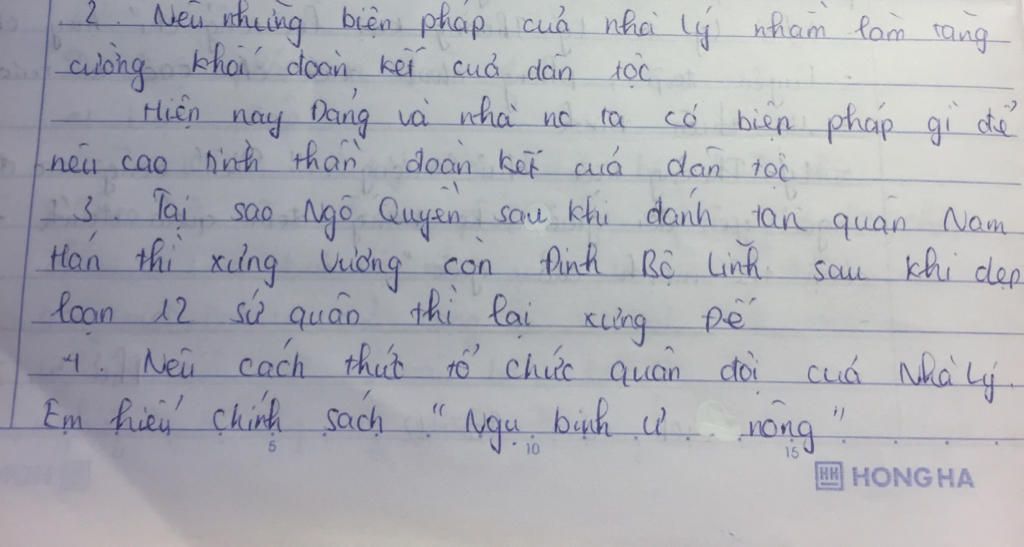 2. Nêu những biện pháp của nhà Lý nhằm làm tăng
cường khối đoàn kết của dân tộc
Hiện nay Đảng và nhà nc ta có biện pháp gì để
nêu cao tinh thần đoàn kết của dân tộc
3. Tại sao Ngô Quyền sau khi đánh tan quân Nam
Hán thì xưng Vương còn Đinh Bộ Lĩnh sau khi dẹp
loạn 12 sứ quân thì lại xưng Đế
4. Nêu cách thức tổ chức quân đội của Nhà Lý.
Em hiểu chính sách "Ngụ binh ư nông"
5 10 15
HH HONG HA